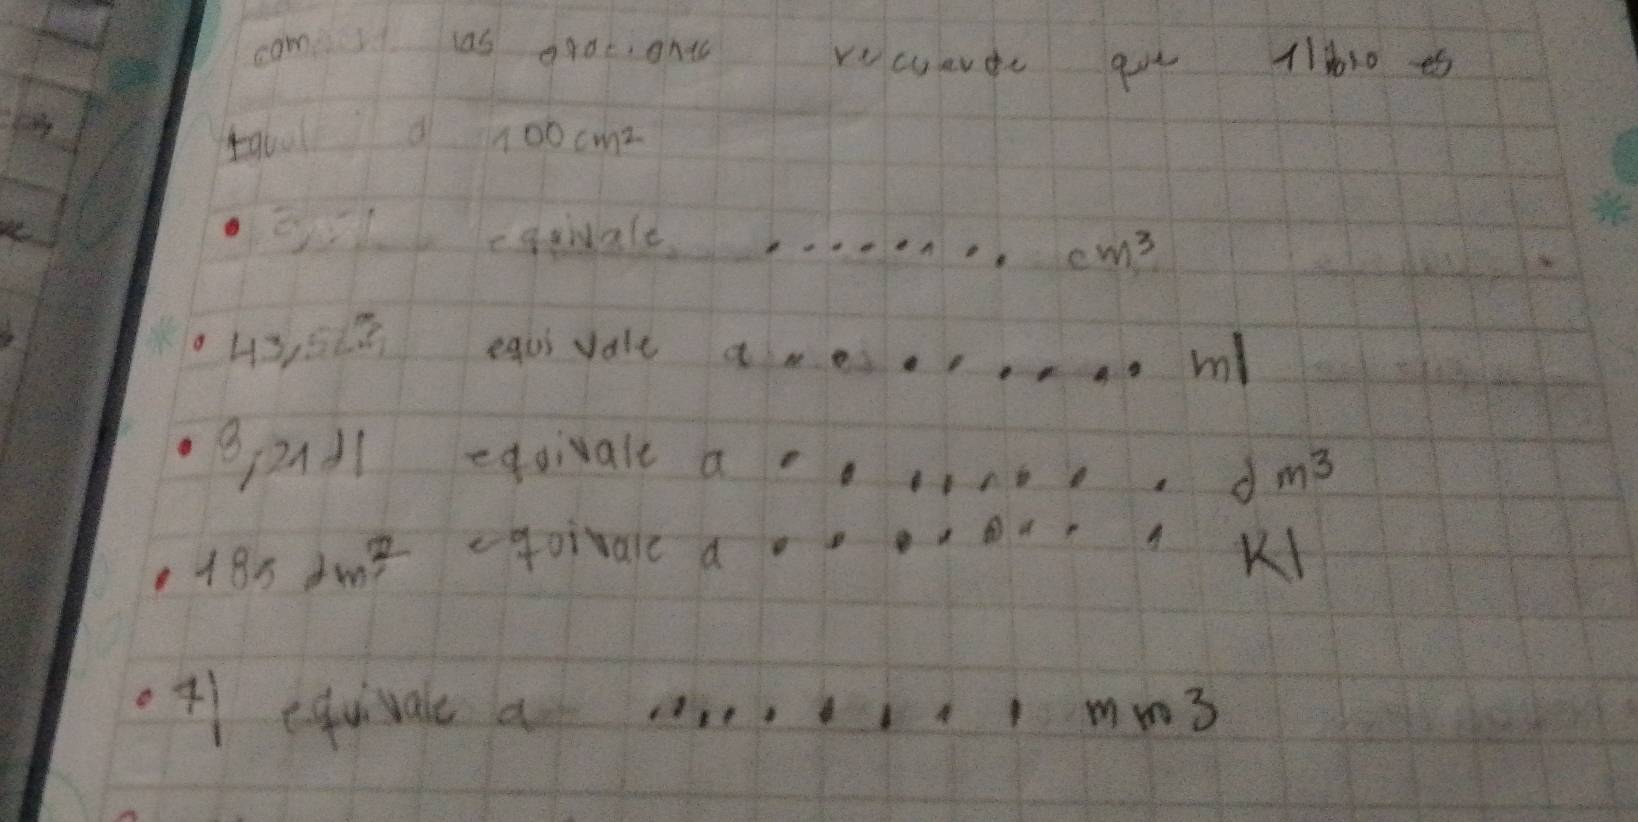 las oraciones recuerde que 1 litro es
igual a 100 cm2
equivale ........ cm3
equivale a ........ ml
8,21 dl equivale a ........ dm3
185 dm3 equivale a ........ Kl
7l equivale a .......... mm3